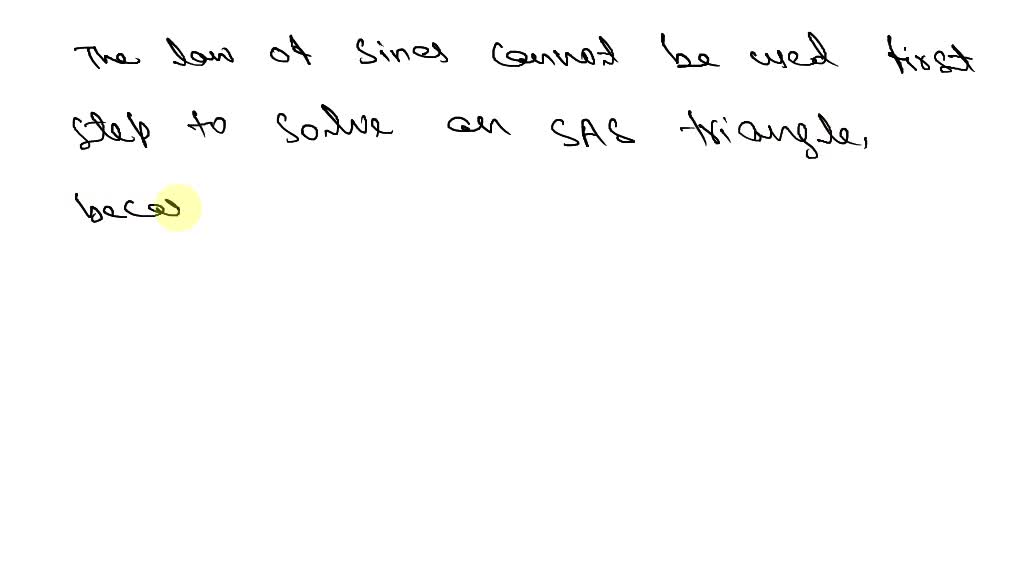 The law of sines cannot be used first
step to solve an SAS triangle,
beca